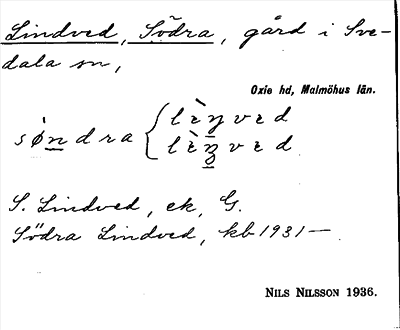 Lindved, Södra, gård i Sve-
dala sn,
Oxie hd, Malmöhus län.
söndra { lèŋved
lènved
S. Lindved, ek, G.
Södra Lindved, kb 1931—
NILS NILSSON 1936.